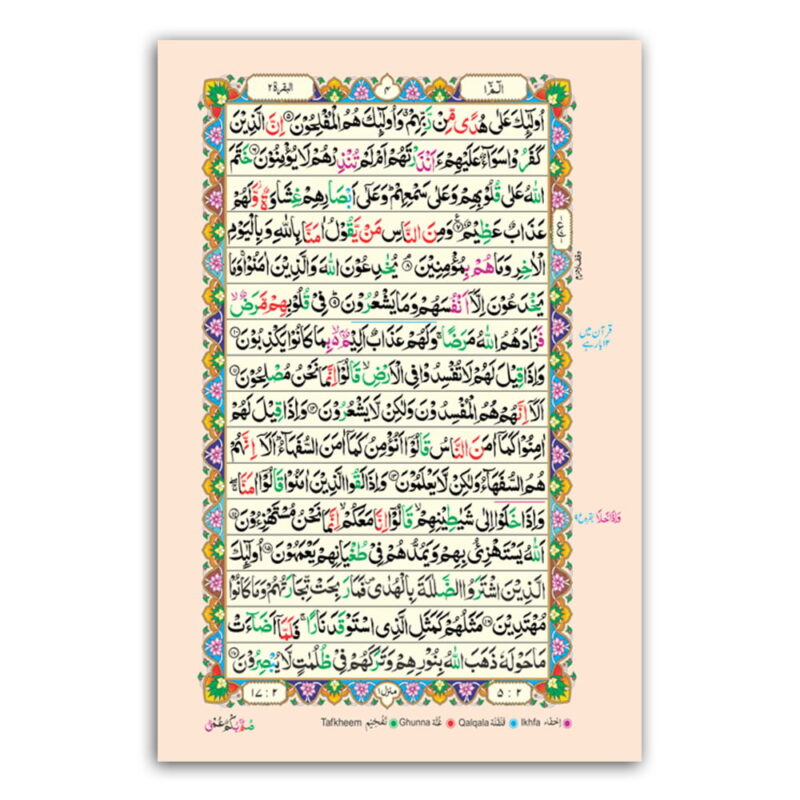 الٓمّٓ ١
٤
البقرة ٢
اُولٰٓئِكَ عَلٰى هُدًى مِّنْ رَّبِّهِمْ ۙ وَاُولٰٓئِكَ هُمُ الْمُفْلِحُوْنَ ۵ اِنَّ الَّذِيْنَ
كَفَرُوْا سَوَآءٌ عَلَيْهِمْ ءَاَنْذَرْتَهُمْ اَمْ لَمْ تُنْذِرْهُمْ لَا يُؤْمِنُوْنَ ۶ خَتَمَ
اللّٰهُ عَلٰى قُلُوْبِهِمْ وَعَلٰى سَمْعِهِمْ ؕ وَعَلٰٓى اَبْصَارِهِمْ غِشَاوَةٌ ۫ وَّلَهُمْ
عَذَابٌ عَظِيْمٌ ۷ وَمِنَ النَّاسِ مَنْ يَّقُوْلُ اٰمَنَّا بِاللّٰهِ وَبِالْيَوْمِ
الْاٰخِرِ وَمَا هُمْ بِمُؤْمِنِيْنَ ۸ يُخٰدِعُوْنَ اللّٰهَ وَالَّذِيْنَ اٰمَنُوْا ۚ وَمَا
يَخْدَعُوْنَ اِلَّآ اَنْفُسَهُمْ وَمَا يَشْعُرُوْنَ ۹ فِيْ قُلُوْبِهِمْ مَّرَضٌ ۙ
فَزَادَهُمُ اللّٰهُ مَرَضًا ۚ وَلَهُمْ عَذَابٌ اَلِيْمٌ ۢ بِمَا كَانُوْا يَكْذِبُوْنَ ۱۰
وَاِذَا قِيْلَ لَهُمْ لَا تُفْسِدُوْا فِي الْاَرْضِ ۙ قَالُوْٓا اِنَّمَا نَحْنُ مُصْلِحُوْنَ ۱۱
اَلَآ اِنَّهُمْ هُمُ الْمُفْسِدُوْنَ وَلٰكِنْ لَّا يَشْعُرُوْنَ ۱۲ وَاِذَا قِيْلَ لَهُمْ
اٰمِنُوْا كَمَآ اٰمَنَ النَّاسُ قَالُوْٓا اَنُؤْمِنُ كَمَآ اٰمَنَ السُّفَهَآءُ ؕ اَلَآ اِنَّهُمْ
هُمُ السُّفَهَآءُ وَلٰكِنْ لَّا يَعْلَمُوْنَ ۱۳ وَاِذَا لَقُوا الَّذِيْنَ اٰمَنُوْا قَالُوْٓا اٰمَنَّا ۖ
وَاِذَا خَلَوْا اِلٰى شَيٰطِيْنِهِمْ ۙ قَالُوْٓا اِنَّا مَعَكُمْ ۙ اِنَّمَا نَحْنُ مُسْتَهْزِءُوْنَ ۱۴
اَللّٰهُ يَسْتَهْزِئُ بِهِمْ وَيَمُدُّهُمْ فِيْ طُغْيَانِهِمْ يَعْمَهُوْنَ ۱۵ اُولٰٓئِكَ
الَّذِيْنَ اشْتَرَوُا الضَّلٰلَةَ بِالْهُدٰى ۪ فَمَا رَبِحَتْ تِّجَارَتُهُمْ وَمَا كَانُوْا
مُهْتَدِيْنَ ۱۶ مَثَلُهُمْ كَمَثَلِ الَّذِي اسْتَوْقَدَ نَارًا ۚ فَلَمَّآ اَضَآءَتْ
مَا حَوْلَهٗ ذَهَبَ اللّٰهُ بِنُوْرِهِمْ وَتَرَكَهُمْ فِيْ ظُلُمٰتٍ لَّا يُبْصِرُوْنَ ۱۷
قرآن میں
۱۲ بار ہے
وَاِذَا خَلَا
۵ : ۲
منزل ۱
۱۷ : ۲
Tafkheem تَفْخِيْم Ghunna غُنَّه Qalqala قَلْقَلَة Ikhfa اِخْفَاء
صُمٌّۢ بُكْمٌ عُمْىٌ